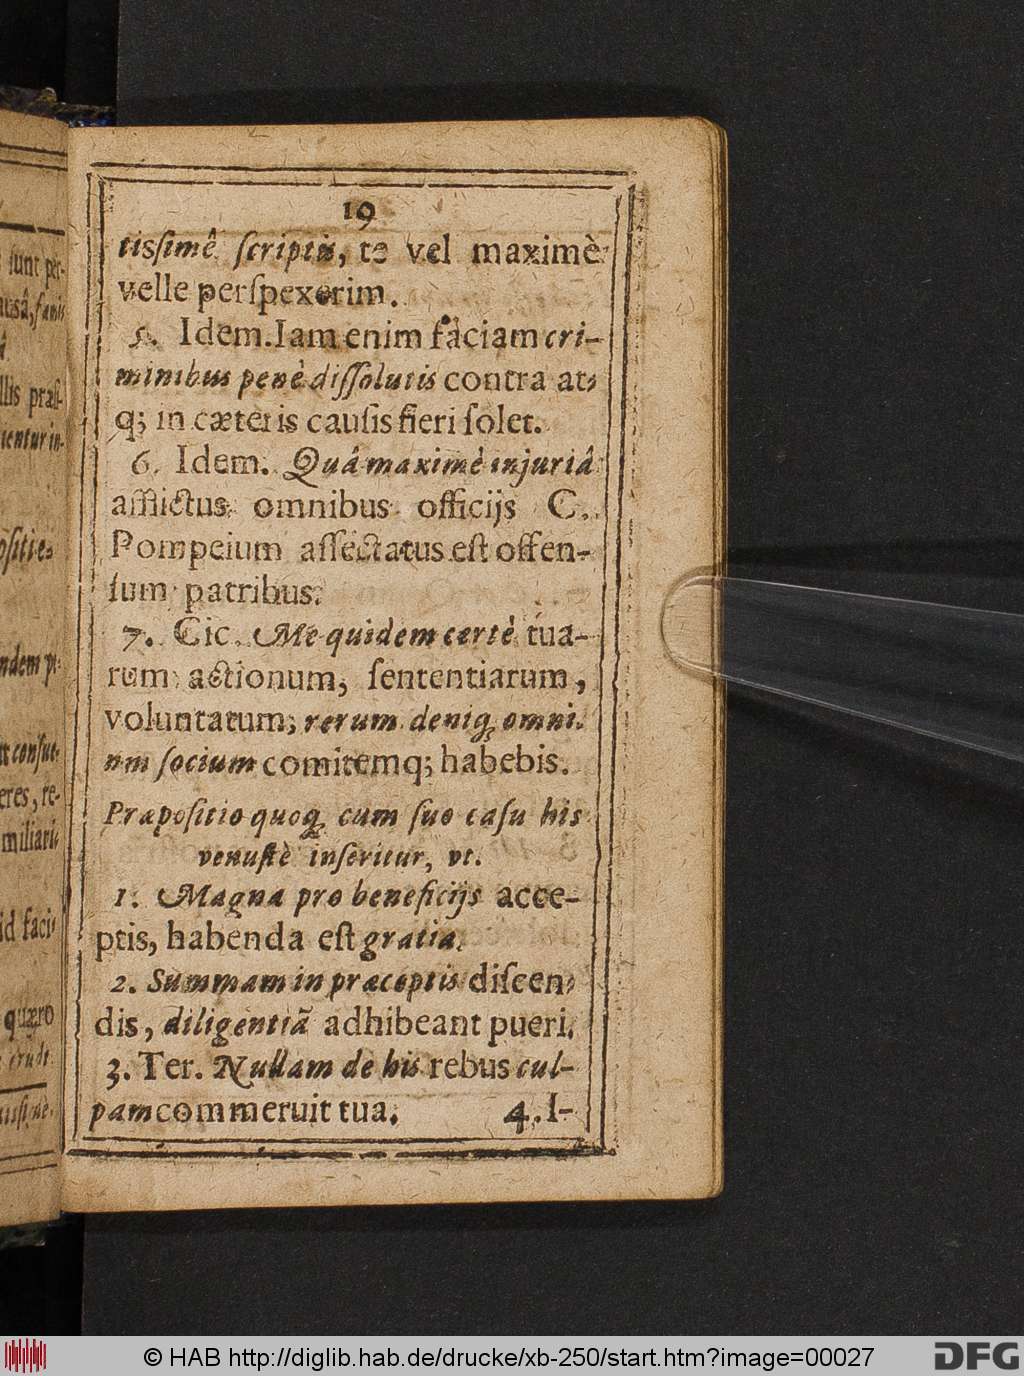 19
tissimê scriptis, te vel maximè
velle perspexerim.
5. Idem. Iam enim faciam cri-
minibus penè dissolutis contra at-
q; in cæteris causis fieri solet.
6. Idem. Quâ maximè injuriâ
afflictus omnibus officijs C.
Pompeium assectatus est offen-
sum patribus.
7. Cic. Me quidem certè tua-
rum actionum, sententiarum,
voluntatum, rerum deniq; omni-
um socium comitemq; habebis.
Præpositio quoq; cum suo casu his
venustè inseritur, vt.
1. Magna pro beneficijs acce-
ptis, habenda est gratia.
2. Summam in præceptis discen-
dis, diligentiã adhibeant pueri.
3. Ter. Nullam de his rebus cul-
pam commeruit tua.
4. I-
sunt per-
llis præs-
ntur in-
ositie
ndem pr
consue-
eres, re-
miliari
id faci
quæro
erudi
© HAB http://diglib.hab.de/drucke/xb-250/start.htm?image=00027
DFG